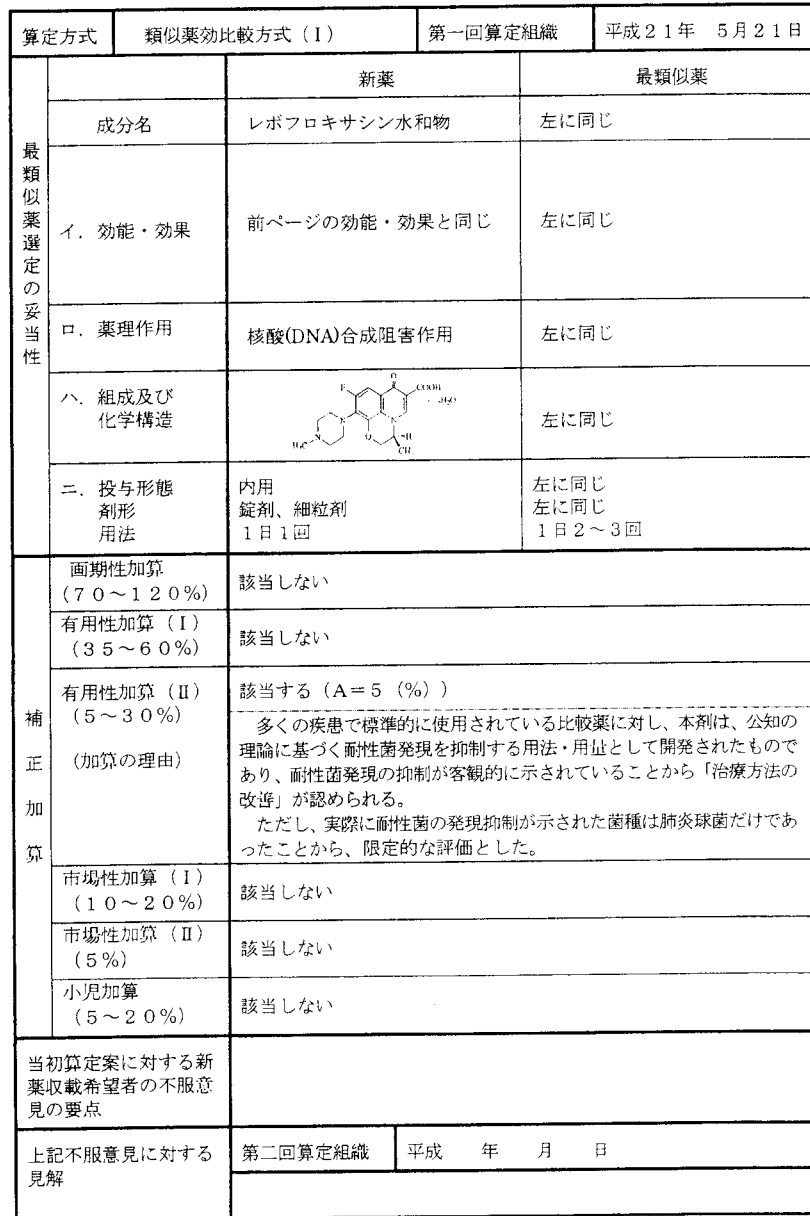 算定方式 類似薬効比較方式（Ⅰ） 第一回算定組織 平成２１年 ５月２１日
最類似薬選定の妥当性
新薬 最類似薬
成分名 レボフロキサシン水和物 左に同じ
イ．効能・効果 前ページの効能・効果と同じ 左に同じ
ロ．薬理作用 核酸(DNA)合成阻害作用 左に同じ
ハ．組成及び
化学構造 左に同じ
F O COOH
N N O H
ニ．投与形態 内用 左に同じ
剤形 錠剤、細粒剤 左に同じ
用法 １日１回 １日２～３回
補正加算
画期性加算
（７０～１２０％） 該当しない
有用性加算（Ⅰ）
（３５～６０％） 該当しない
有用性加算（Ⅱ） 該当する（Ａ＝５（％））
（５～３０％）
（加算の理由）
多くの疾患で標準的に使用されている比較薬に対し、本剤は、公知の
理論に基づく耐性菌発現を抑制する用法・用量として開発されたもので
あり、耐性菌発現の抑制が客観的に示されていることから「治療方法の
改善」が認められる。
ただし、実際に耐性菌の発現抑制が示された菌種は肺炎球菌だけであ
ったことから、限定的な評価とした。
市場性加算（Ⅰ）
（１０～２０％） 該当しない
市場性加算（Ⅱ）
（５％） 該当しない
小児加算
（５～２０％） 該当しない
当初算定案に対する新
薬収載希望者の不服意
見の要点
上記不服意見に対する 第二回算定組織 平成 年 月 日
見解